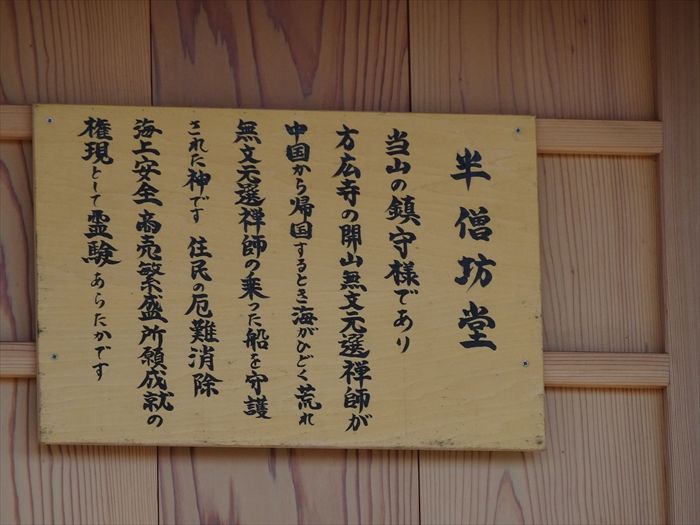 半僧坊堂
当山の鎮守様であり
方広寺の開山無文元選禅師が
中国から帰国するとき海がひどく荒れ
無文元選禅師の乗った船を守護
された神です 住民の厄難消除
海上安全 商売繁盛 所願成就の
権現として霊験あらたかです